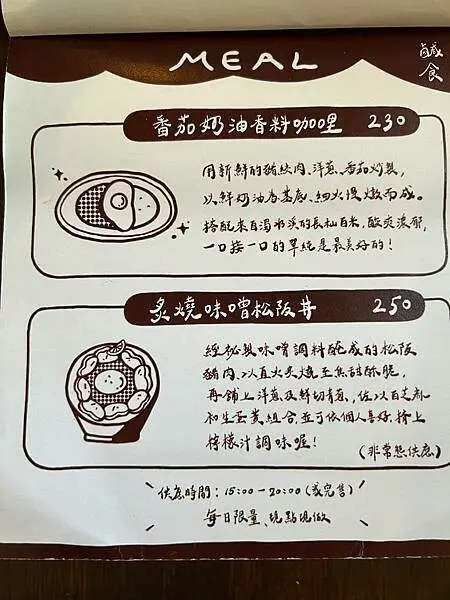 MEAL
鹹食
番茄奶油香料咖哩 230
用新鮮的豬絞肉、洋蔥、番茄炒製,
以鮮奶油為基底、細火慢燉而成。
搭配來自濁水溪的長秈白米,酸爽濃郁,
一口接一口的單純是最美好的!
炙燒味噌松阪丼 250
經秘製味噌調料醃成的松阪
豬肉,以直火炙燒至焦甜酥脆,
再鋪上洋蔥及鮮切青蔥,佐以白芝麻
和生蛋黃組合,並可依個人喜好,擠上
檸檬汁調味喔!
(非常態供應)
供應時間:15:00-20:00(或完售)
每日限量、現點現做